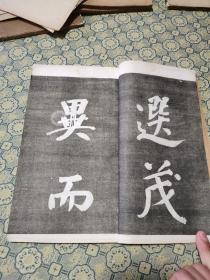 選茂
異而